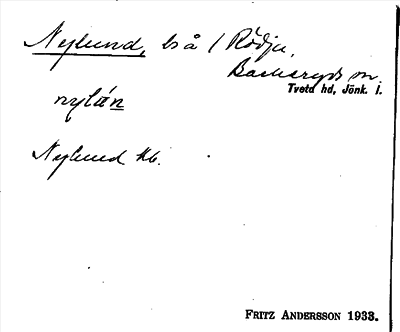 Nylund, bs å / Rödja,
Barkeryds sn.
Tveta hd, Jönk. l.
nylán
Nylund Kb.
FRITZ ANDERSSON 1933.